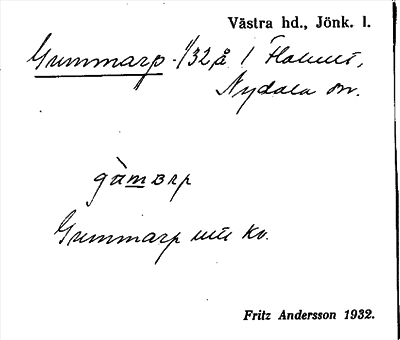 Västra hd., Jönk. l.
Gummarp 1/32 å / Holmit,
Nydala sn.
gàmarp
Gummarp utü kv.
Fritz Andersson 1932.